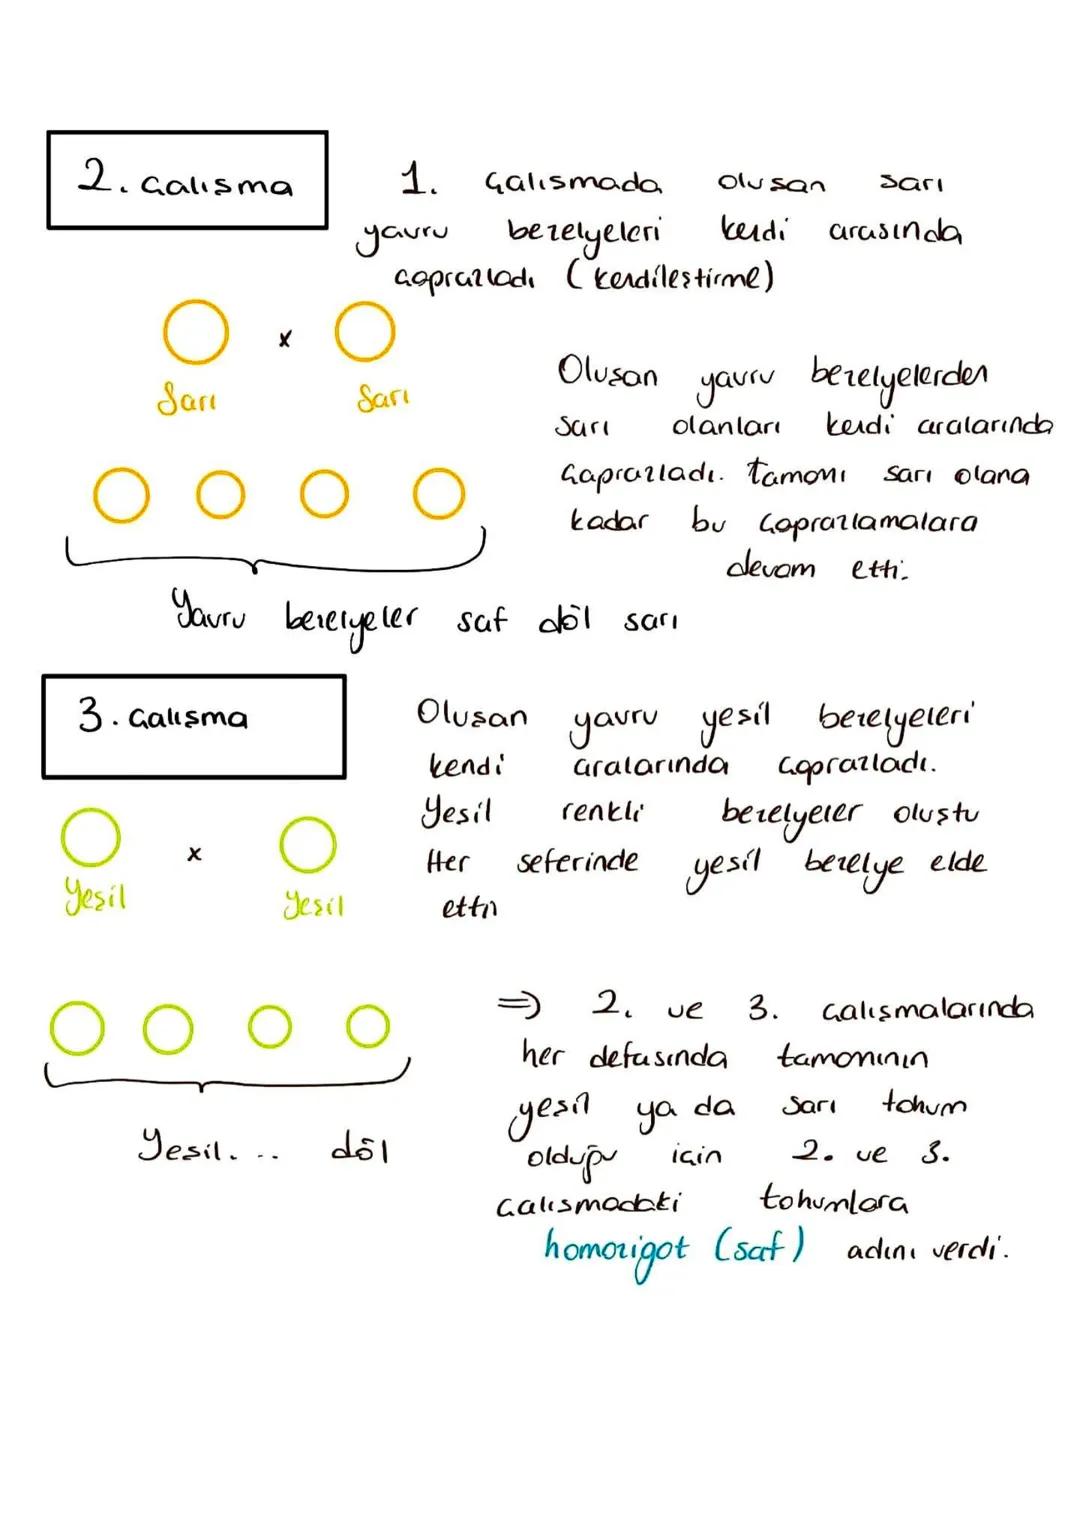 2. Çalısma
1. Çalısmada olusan sarı
yavru bezelyeleri kendi arasında
çaprazladı (kendileştirme)
x
Sarı Sarı
Olusan yavru bezelyelerden
sarı olanları kendi aralarında
çaprazladı. tamamı sarı olana
kadar bu çaprazlamalara
devam etti.
Yavru bezelyeler saf döl sarı
3. Çalışma
Oluşan yavru yesil bezelyeleri
kendi aralarında çaprazladı.
Yesil renkli bezelyeler oluştu
Her seferinde yesil bezelye elde
etti
x
Yeşil Yeşil
=> 2. ve 3. Çalışmalarında
her defasında tamamının
yesil ya da sarı tohum
olduğu için 2. ve 3.
çalısmadaki tohumlara
homozigot (saf) adını verdi.
Yesil... döl